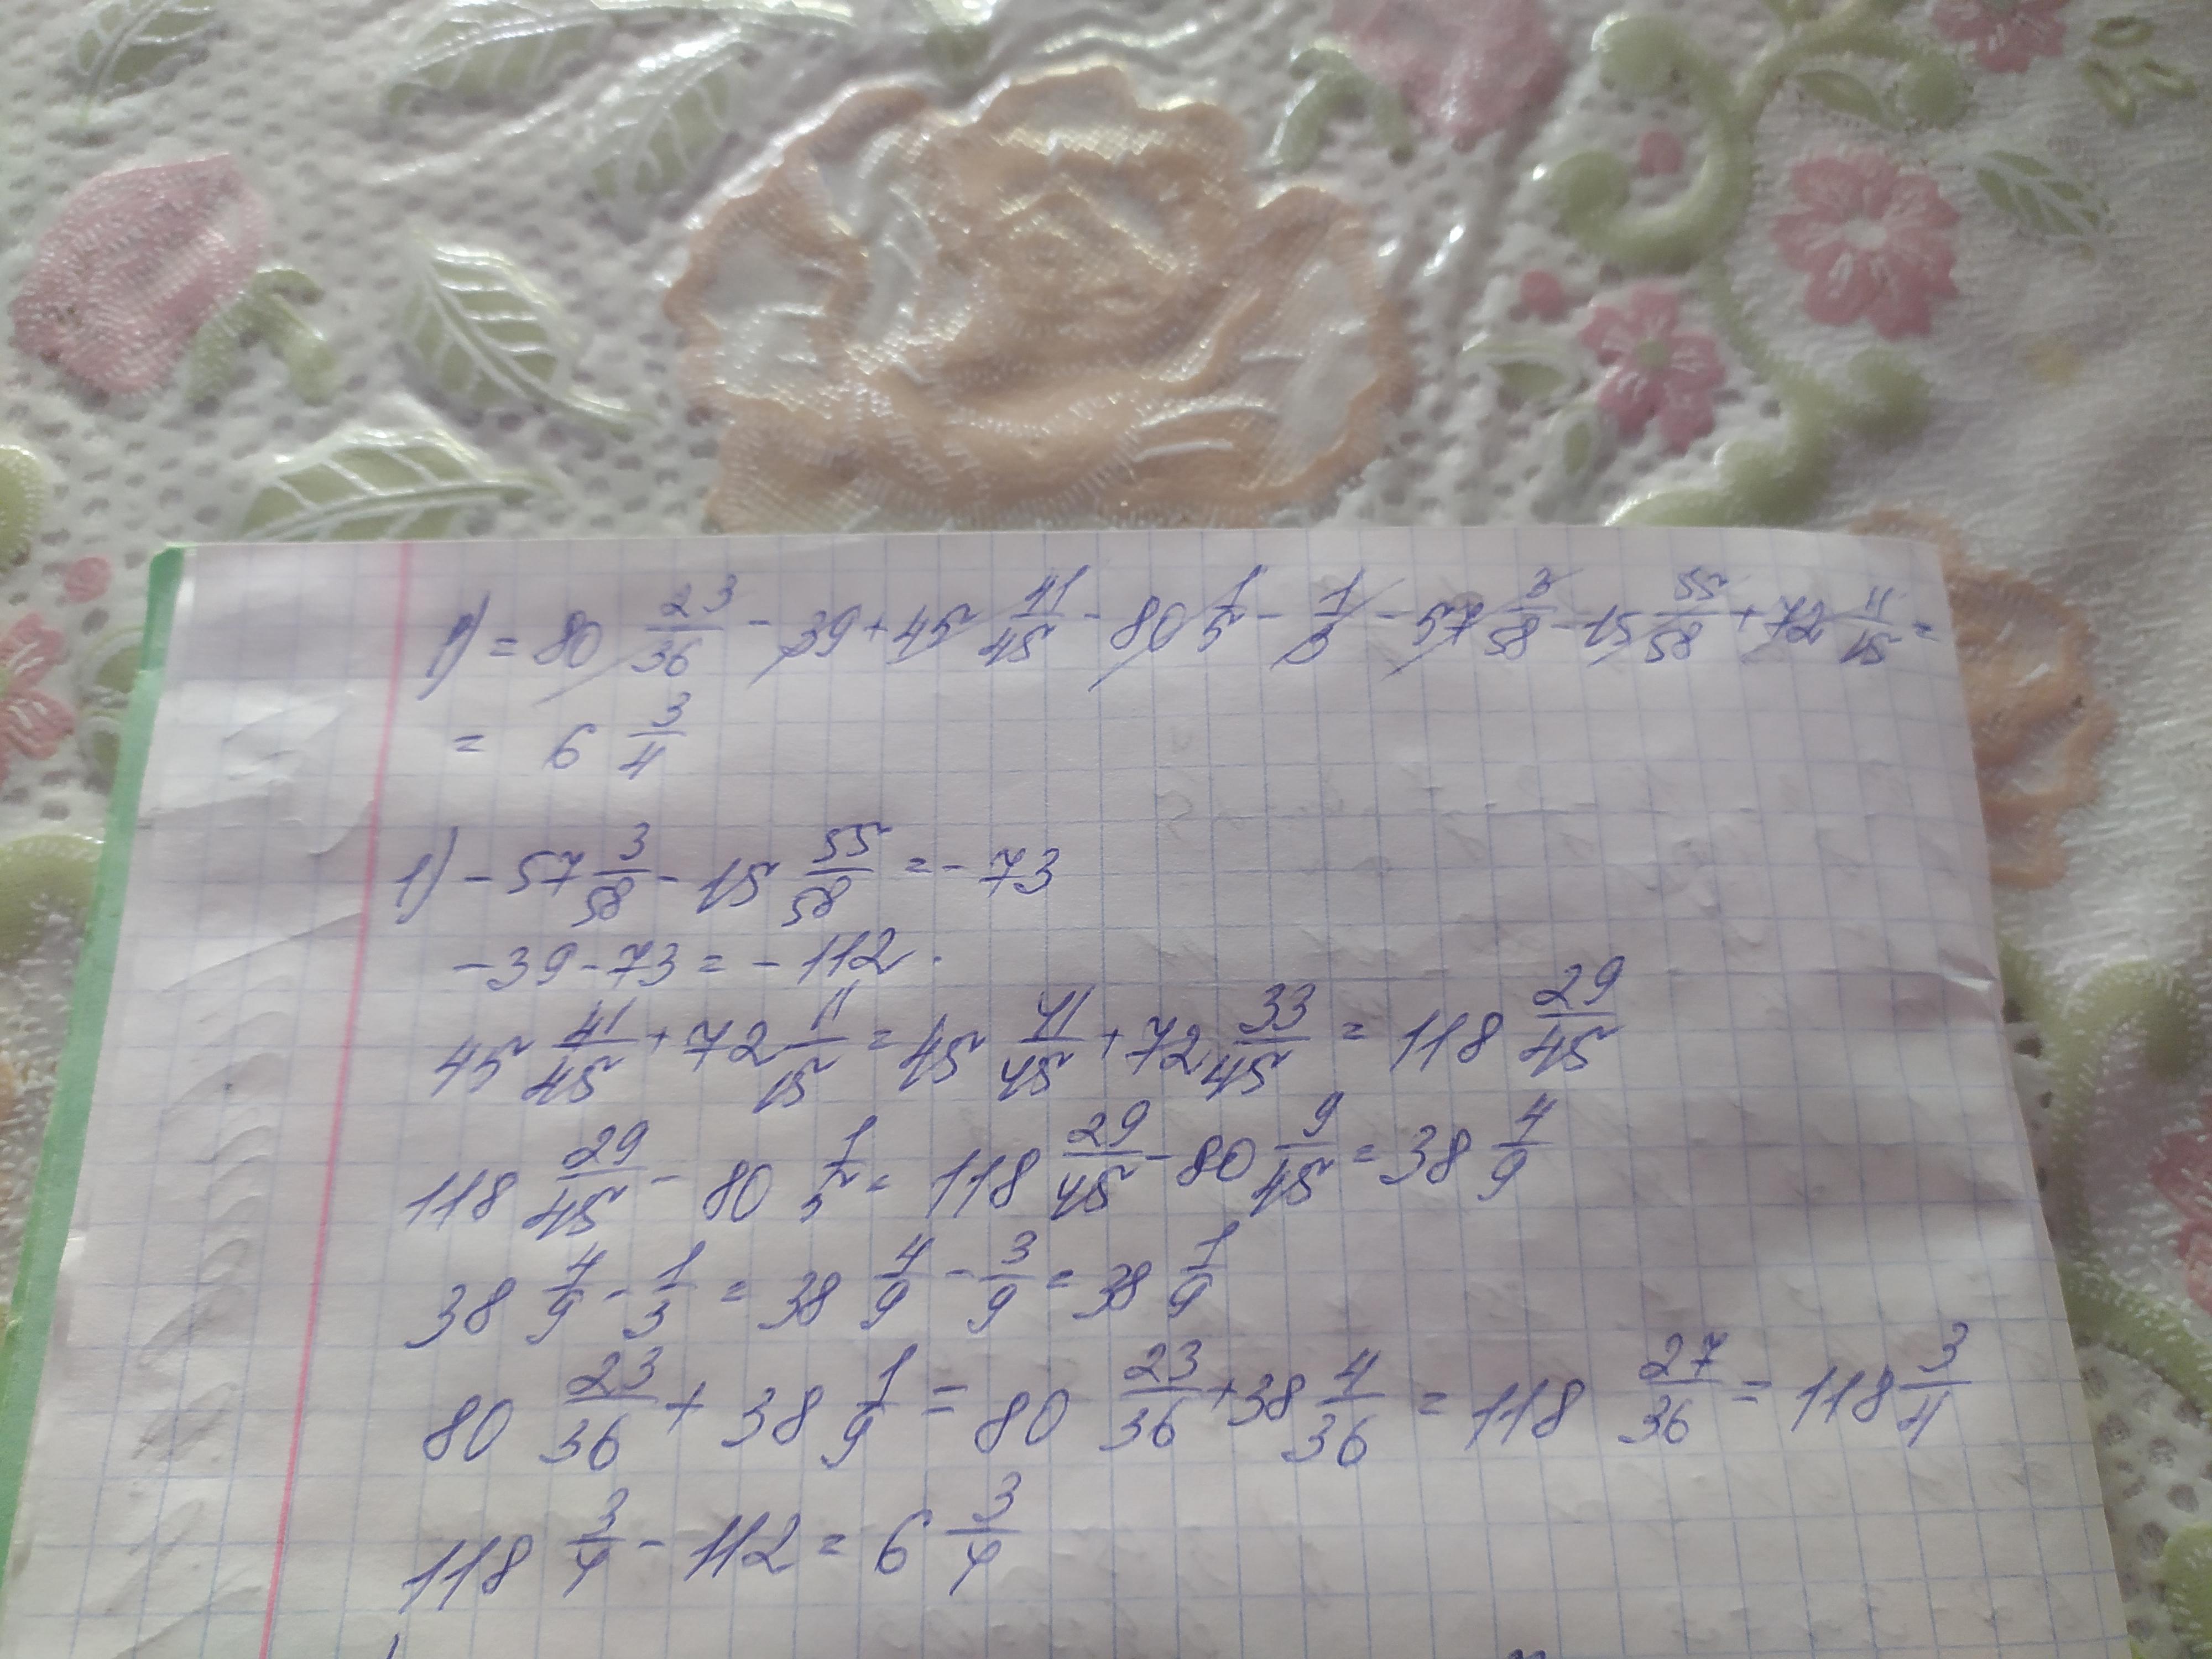 1) = 80 23/36 - 39 + 45 41/45 - 80 1/5 - 1/3 - 57 3/58 - 15 55/58 + 72 11/15 =
= 6 3/4
1) - 57 3/58 - 15 55/58 = - 73
- 39 - 73 = - 112.
45 41/45 + 72 11/15 = 45 41/45 + 72 33/45 = 118 29/45
118 29/45 - 80 1/5 = 118 29/45 - 80 9/45 = 38 4/9
38 4/9 - 1/3 = 38 4/9 - 3/9 = 38 1/9
80 23/36 + 38 1/9 = 80 23/36 + 38 4/36 = 118 27/36 = 118 3/4
118 3/4 - 112 = 6 3/4